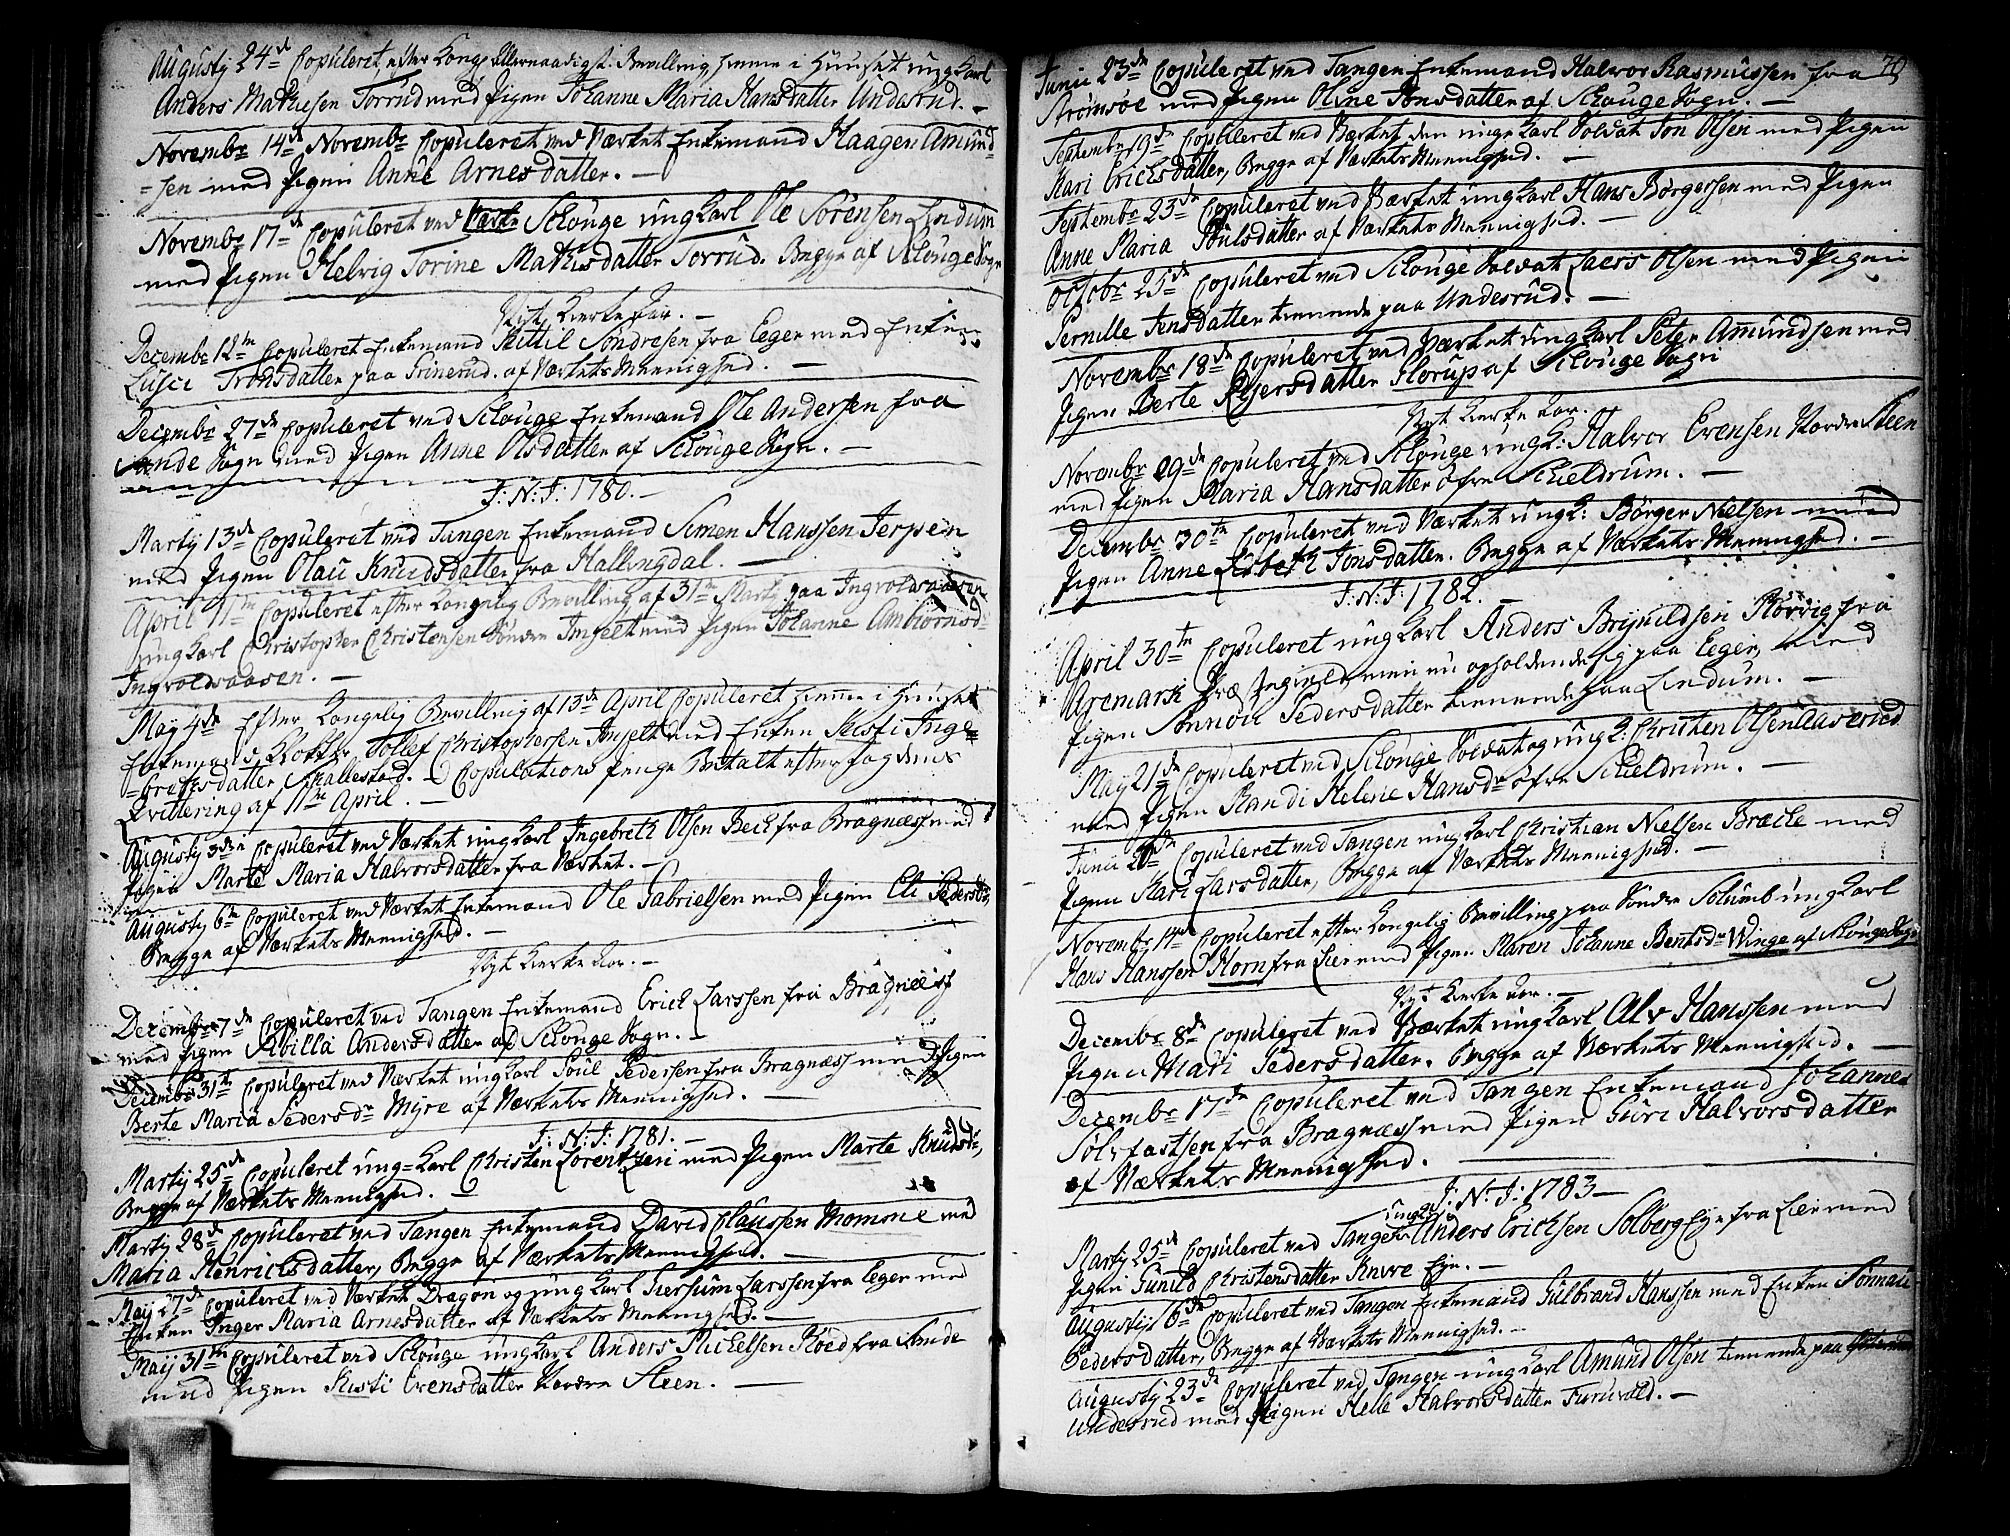 Augustj 24de Copuleret, efter Kongl. Allernaadigst. Bevilling, hiemme i Huuset ung Karl
Anders Mathiesen Torrud med Pigen Johanne Maria Hansdatter Underud. —
Novembr 14de Novembr Copuleret ved Værket Enkemand Haagen Amund-
=sen med Pigen Anne Arnesdatter. —
Novembr 17de Copuleret ved Værke Schouge ung Karl Ole Sörensen Lindum
med Pigen Helvig Torine Mathisdatter Torrud. Begge af Schouge Sogn
Nyt Kerke Aar. —
Decembr 12te Copuleret Enkemand Kittil Sondresen fra Eeger med Enken
Lusci Tronsdatter paa Grinerud. af Værkets Meenighed. —
Decembr 27de Copuleret ved Schouge Enkemand Ole Andersen fra
Sande Sogn med Pigen Anne Olsdatter af Schouge Sogn. —
J: N: J: 1780. —
Martij 13de Copuleret ved Tangen Enkemand Simen Hanssen Jerpen
med Pigen Olau Knudsdatter fra Hallingdal. —
April 11te Copuleret efter Kongelig Bevilling af 31te Martj paa Ingvoldsaasen
ung Karl Christopher Christensen Söndre Ingselt med Pigen Johanne Ambiörnsd
Ingvoldsaasen. —
May 4de Efter Kongelig Bevilling af 13de April Copuleret hiemme i Huuset
Enkemand Klokker Tollef Christophersen Ingselt med Enken Kisti Inge=
=bretsdatter Skallestad. — Copulations Penge Betalt efter Fogdens
Qvittering af 11te April. —
Augusty 3die Copuleret ved Værket ung Karl Ingebreth Olsen Beck fra Bragnæss med
Pigen Marte Maria Halvorsdatter fra Værket. —
Augusty 6te Copuleret ved Værket Enkemand Ole Gabrielsen med Pigen Eli Pedersdr,
Begge af Værkets Meenighed. —
Nyt Kerke Aar. —
Decembr 7de Copuleret ved Tangen Enkemand Erich Larssen fra Bragnæss
med Pigen Sibilla Andersdatter af Schouge Sogn. —
Decembr 31te Copuleret ved Værket ung Karl Poul Pedersen fra Bragnæss med Pigen
Berte Maria Pedersdr Myre af Værkets Meenighed. —
J: N: J: 1781. —
Martij 25de Copuleret ung=Karl Christen Lorentzen med Pigen Marte Knudsdr,
Begge af Værkets Meenighed. —
Martij 28de Copuleret ved Tangen Enkemand David Claussen Momone med
Maria Henrichsdatter, Begge af Værkets Meenighed. —
Maij 27de Copuleret ved Værket Dragon og ung Karl Giersum Larssen fra Eeger med
Enken Inger Maria Arnesdatter af Værkets Meenighed. —
Maij 31te Copuleret ved Schouge ung Karl Anders Michelsen Röed fra Sande
med Pigen Kisti Evensdatter Nordre Steen. —
70
Junii 23de Copuleret ved Tangen Enkemand Halvor Rasmussen fra
Strömsöe med Pigen Oline Jonsdatter af Schouge Sogn. —
Septembr 19de Copuleret ved Værket den unge Karl Soldat Jon Olsen med Pigen
Kari Erichsdatter, Begge af Værkets Meenighed. —
Septembr 23de Copuleret ved Værket ung Karl Hans Börgersen med Pigen
Anne Maria Poulsdatter af Værkets Meenighed. —
Octobr 25de Copuleret ved Schouge Soldat Laers Olsen med Pigen
Pernille Jensdatter tienende paa Underud. —
Novembr 18de Copuleret ved Værket ung Karl Peter Amundsen med
Pigen Berte Reiersdatter Korup af Schouge Sogn
Nyt Kerke Aar.
Novembr 29de Copuleret ved Schouge ung K: Halvor Evensen Nordre Steen
med Pigen Maria Hansdatter öfre Schieldrum. —
Decembr 30te Copuleret ved Værket ung K: Börger Nielsen med
Pigen Anne Lisbeth Jonsdatter. Begge af Værkets Meenighed. —
J: N: J: 1782. —
April 30te Copuleret ung Karl Anders Brynildsen Korvig fra
Aremark Præstegield, men nu opholdende sig paa Eeger, med
Pigen Sönnou Pedersdatter tienende paa Lindum. —
May 21de Copuleret ved Schouge Soldat og ung K: Christen Olsen Aaserud
med Pigen Randi Helene Hansdr öfre Schieldrum. —
Junii 20de Copuleret ved Tangen ung Karl Christian Nielsen Bræcke med
Pigen Kari Larsdatter, Begge af Værkets Meenighed. —
Novembr 14de Copuleret efter Kongelig Bevilling paa Söndre Solumb ung Karl
Hans Hanssen Horn fra Lier med Pigen Maren Johanne Bentsdr Winge af Skouge Sogn
Nyt Kerke Aar. —
Decembr 8de Copuleret ved Værket ung Karl Alv Hanssen med
Pigen Mari Pedersdatter. Begge af Værkets Meenighed. —
Decembr 17de Copuleret ved Tangen Enkemand Johannes
Sölvfastsen fra Bragnæss med Pigen Guri Halvorsdatter
af Værkets Meenighed. —
J: N: J: 1783 —
Martij 25de Copuleret ved Tangen ung K: Anders Erichsen Solberg Eje fra Lier med
Pigen Gunild Christensdatter Knive Eje. —
Augustij 6de Copuleret ved Tangen Enkemand Gulbrand Hanssen med Enken Sönnau
Pedersdatter, Begge af Værkets Meenighed. —
Augustj 23de Copuleret ved Tangen ung Karl Amund Olsen tienende paa
Underud med Pigen Helle Halvorsdatter Furuvold. —